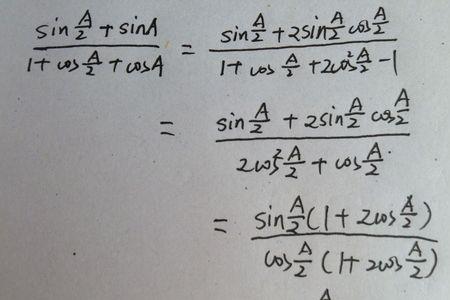 \frac{\sin\frac{A}{2}+\sin A}{1+\cos\frac{A}{2}+\cos A} = \frac{\sin\frac{A}{2}+2\sin\frac{A}{2}\cos\frac{A}{2}}{1+\cos\frac{A}{2}+2\cos^2\frac{A}{2}-1}
= \frac{\sin\frac{A}{2}+2\sin\frac{A}{2}\cos\frac{A}{2}}{2\cos^2\frac{A}{2}+\cos\frac{A}{2}}
= \frac{\sin\frac{A}{2}(1+2\cos\frac{A}{2})}{\cos\frac{A}{2}(1+2\cos\frac{A}{2})}
A